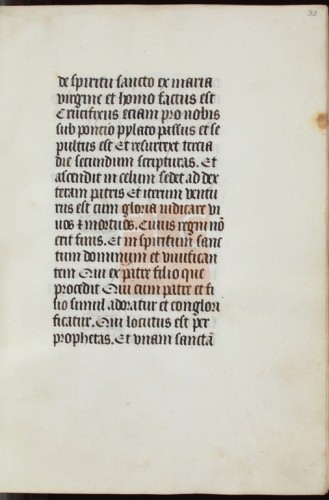 de spiritu sancto ex maria
virgine et homo factus est
Crucifixus eciam pro nobis
sub poncio pylato passus et se
pultus est Et resurexit tercia
die secundum scripturas. Et
ascendit in celum sedet ad dex
teram patris Et iterum ventu
rus est cum gloria iudicare vi
uos ⁊ mortuos. Cuius regni nō
erit finis. Et in spiritum sanc
tum dominum et viuifican
tem Qui ex patre filio que
procedit Qui cum patre et fi
lio simul adoratur et conglori
ficatur. Qui locutus est per
prophetas. Et vnam sanctā